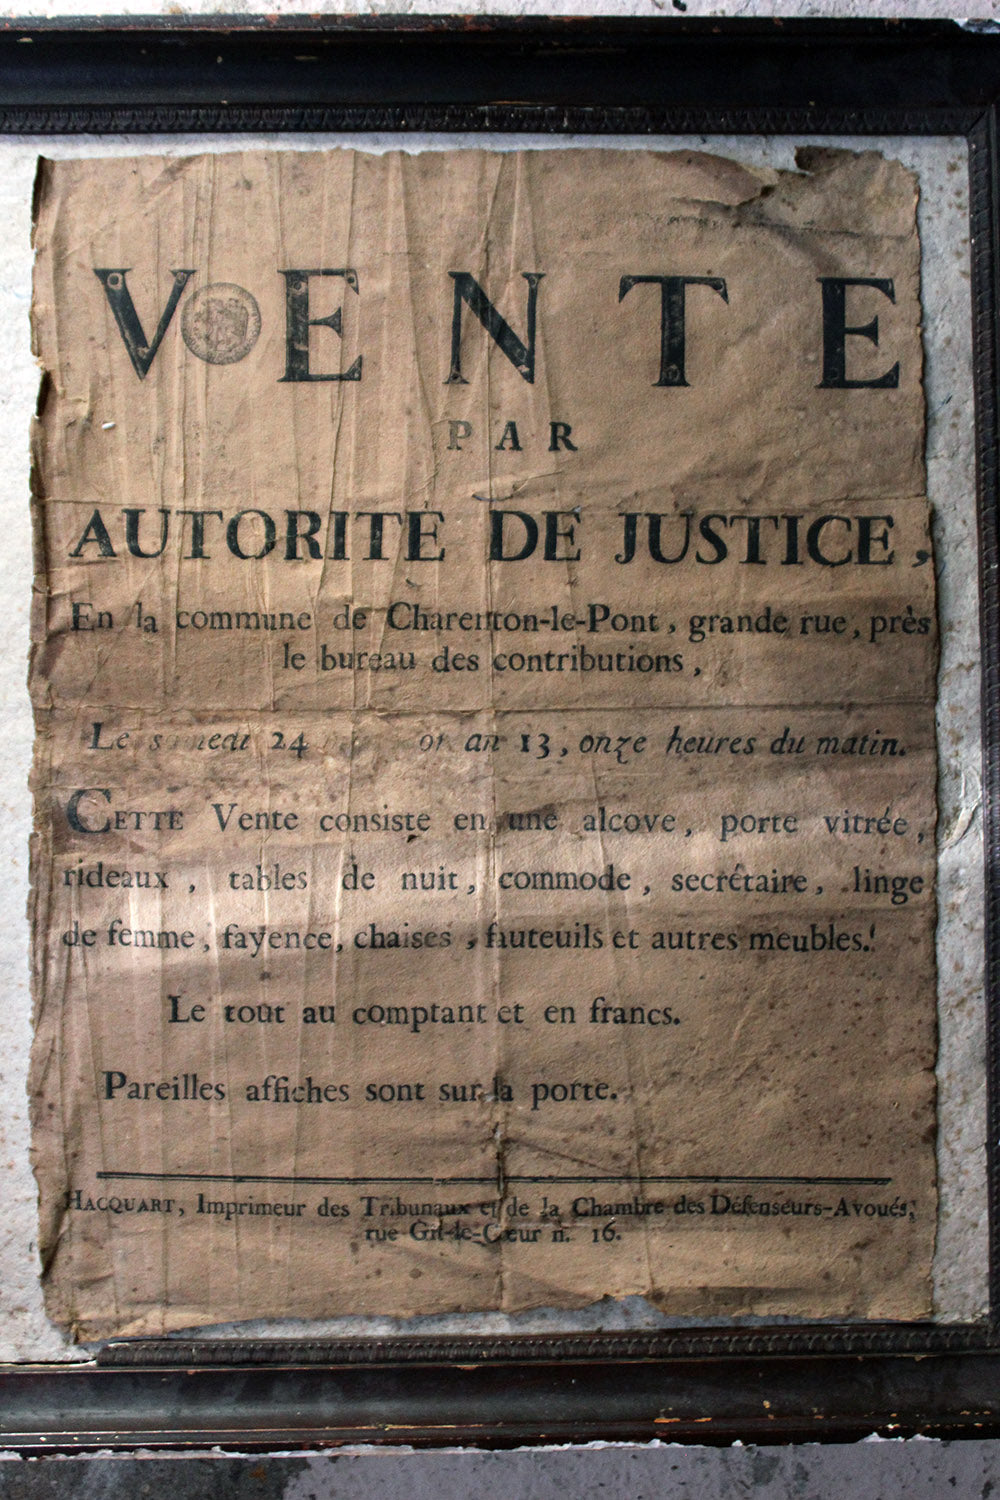 VENTE
PAR
AUTORITÉ DE JUSTICE,
En la commune de Charenton-le-Pont, grande rue, près
le bureau des contributions,
Le samedi 24 an 13, onze heures du matin.
CETTE Vente consiste en une alcove, porte vitrée,
rideaux, tables de nuit, commode, secrétaire, linge
de femme, fayence, chaises, fauteuils et autres meubles.
Le tout au comptant et en francs.
Pareilles affiches sont sur la porte.
HACQUART, Imprimeur des Tribunaux et de la Chambre des Défenseurs-Avoués,
rue Gît-le-Cœur n. 16.